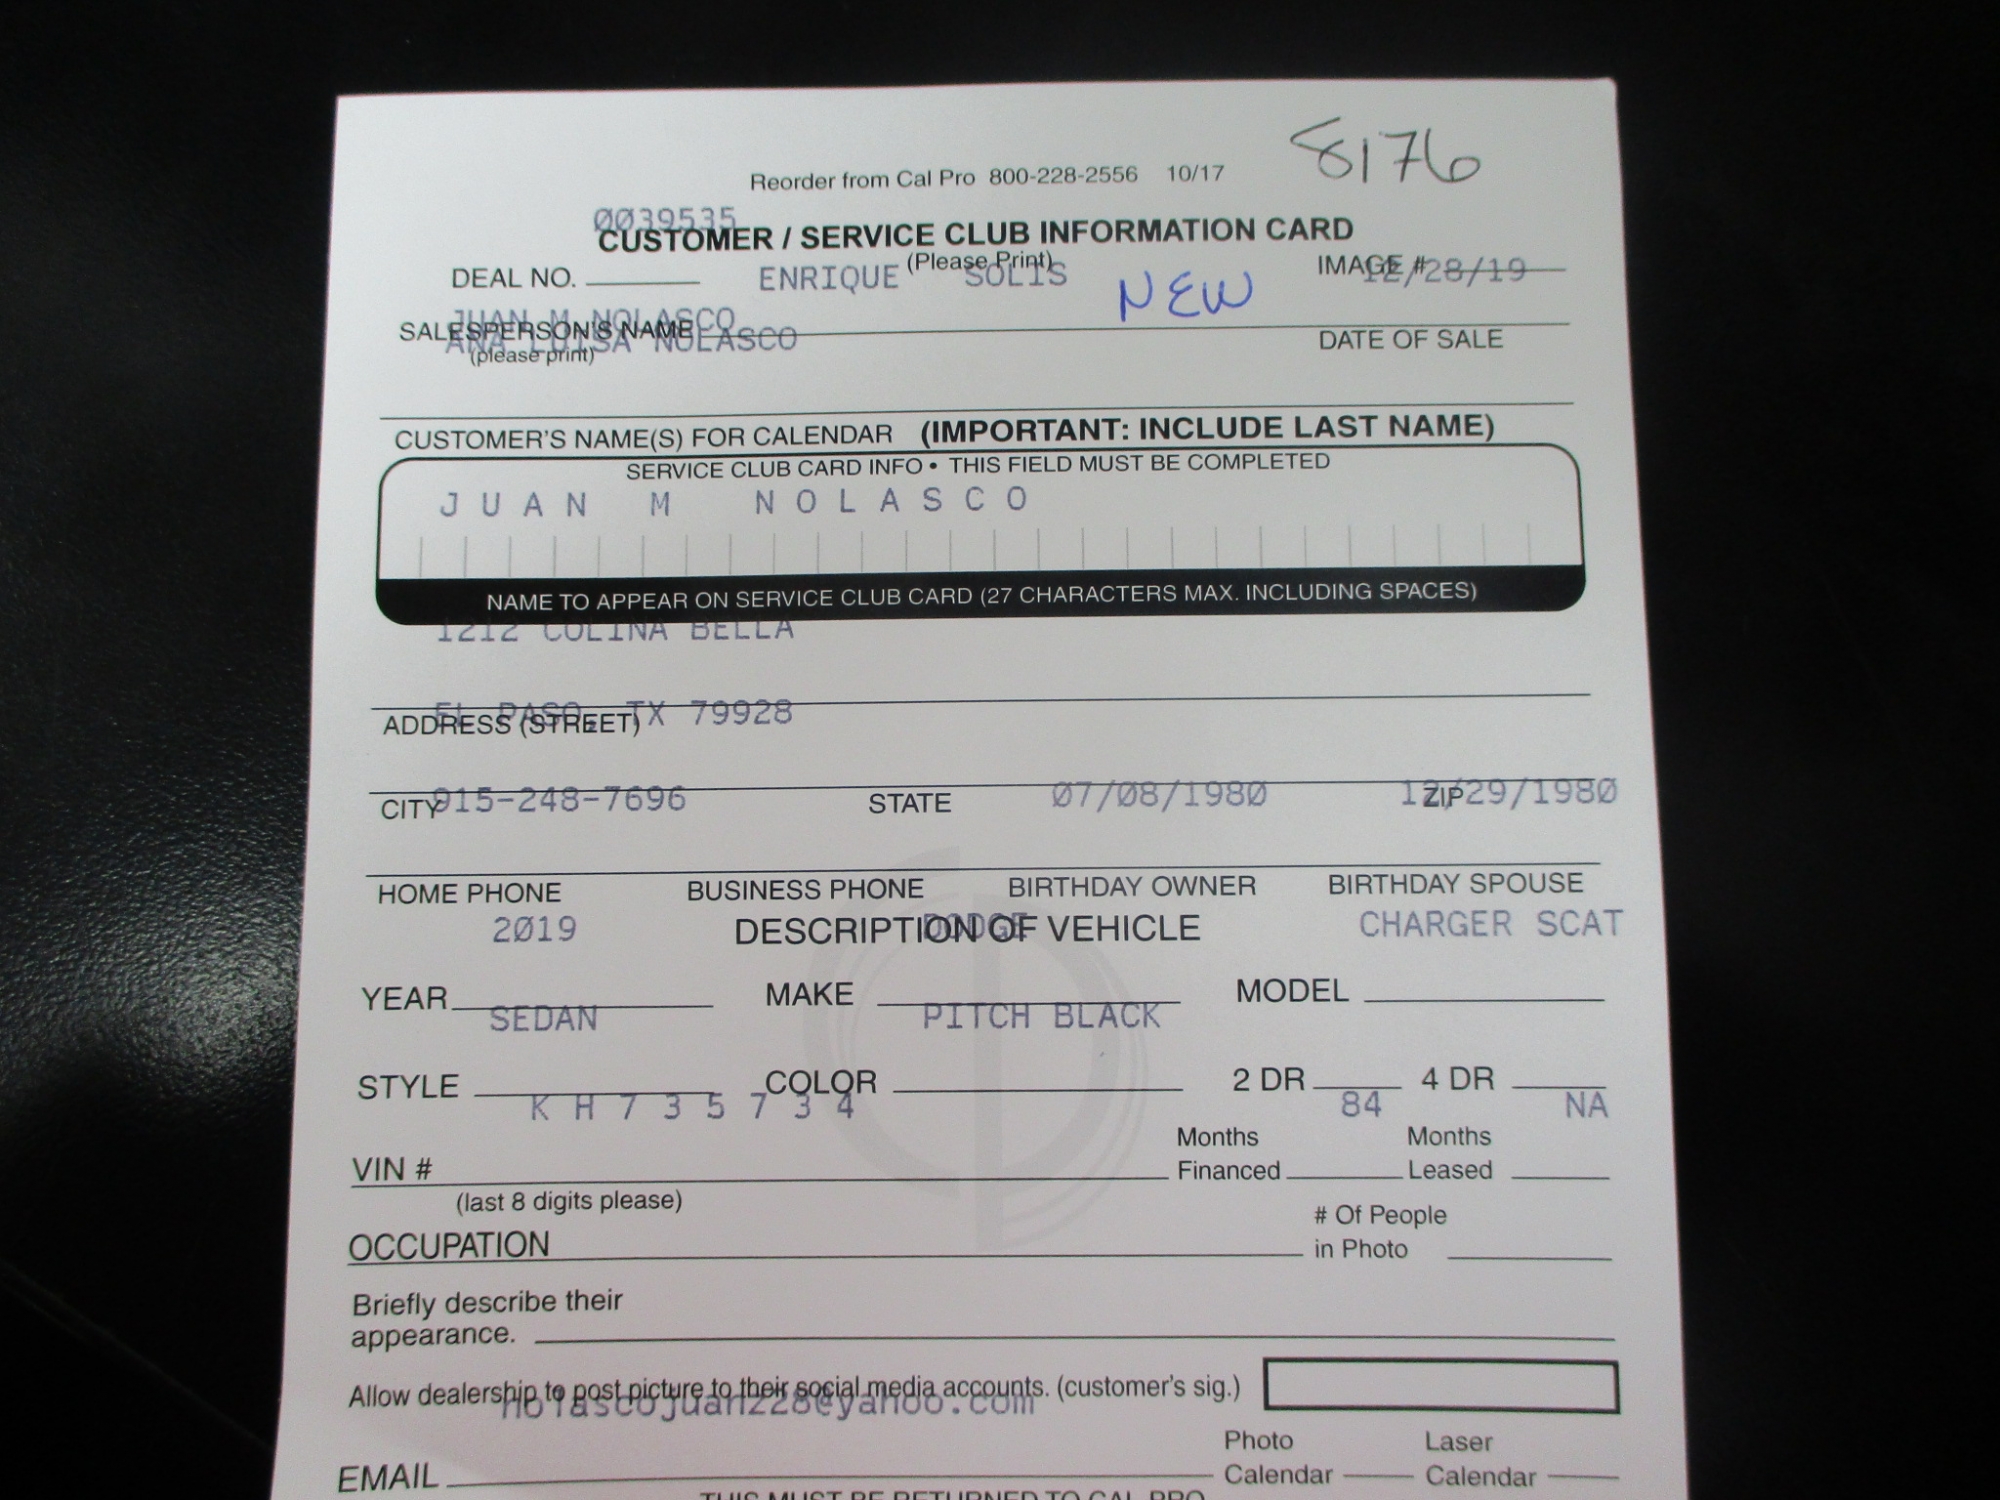 8176
Reorder from Cal Pro 800-228-2556 10/17
0039535
CUSTOMER / SERVICE CLUB INFORMATION CARD
(Please Print)
DEAL NO. ENRIQUE SOLIS NEW IMAGE # 12/28/19
JUAN M NOLASCO
SALESPERSON'S NAME DATE OF SALE
ANA LUISA NOLASCO
(please print)
CUSTOMER'S NAME(S) FOR CALENDAR (IMPORTANT: INCLUDE LAST NAME)
SERVICE CLUB CARD INFO • THIS FIELD MUST BE COMPLETED
JUAN M NOLASCO
NAME TO APPEAR ON SERVICE CLUB CARD (27 CHARACTERS MAX. INCLUDING SPACES)
1212 COLINA BELLA
EL PASO, TX 79928
ADDRESS (STREET)
915-248-7696 07/08/1980 12/29/1980
CITY STATE ZIP
HOME PHONE BUSINESS PHONE BIRTHDAY OWNER BIRTHDAY SPOUSE
2019 DODGE CHARGER SCAT
DESCRIPTION OF VEHICLE
YEAR MAKE MODEL
SEDAN PITCH BLACK
STYLE COLOR 2 DR 4 DR
KH735734 84 NA
Months Financed Months Leased
VIN #
(last 8 digits please)
# Of People in Photo
OCCUPATION
Briefly describe their
appearance.
Allow dealership to post picture to their social media accounts. (customer's sig.)
nolascojuan228@yahoo.com
Photo Calendar Laser Calendar
EMAIL
THIS MUST BE RETURNED TO CAL PRO